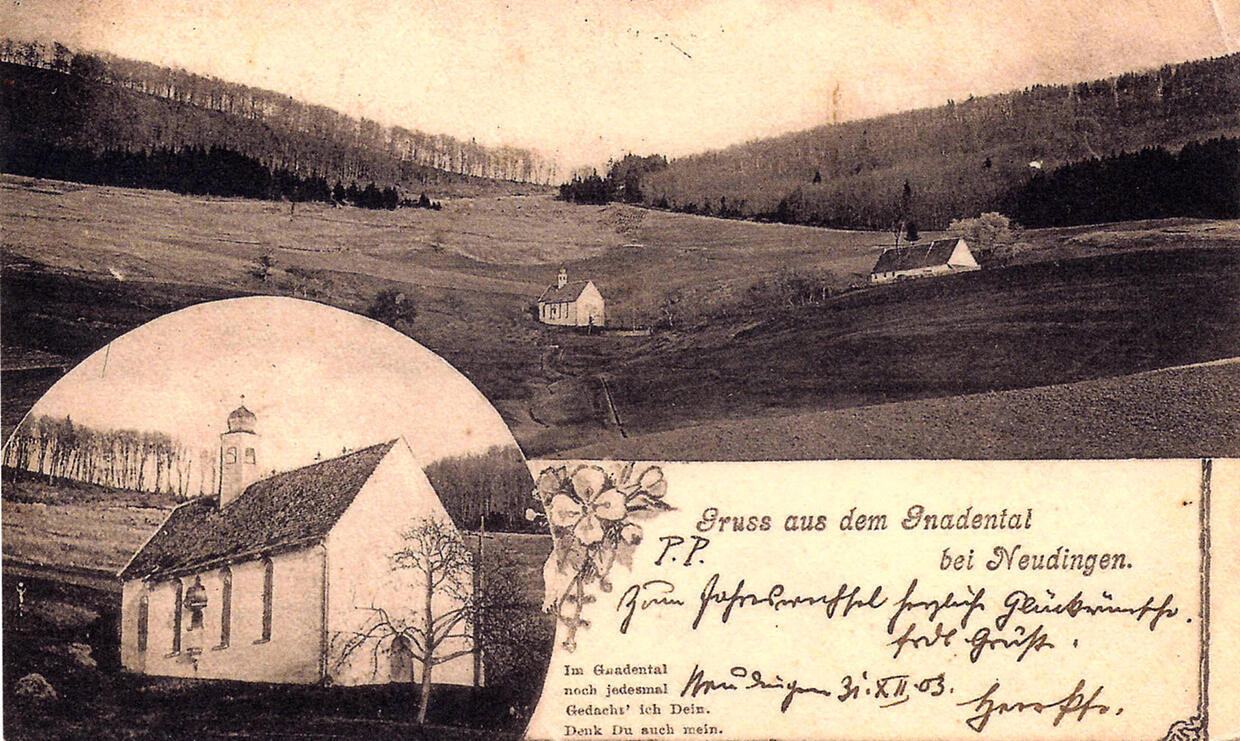 Gruss aus dem Gnadental
bei Neudingen.
P.P.
Zum Jahreswechsel herzliche Glückwünsche.
frdl Grüße.
Neudingen 31.XII.03.
Im Gnadental
noch jedesmal
Gedacht' ich Dein.
Denk Du auch mein.